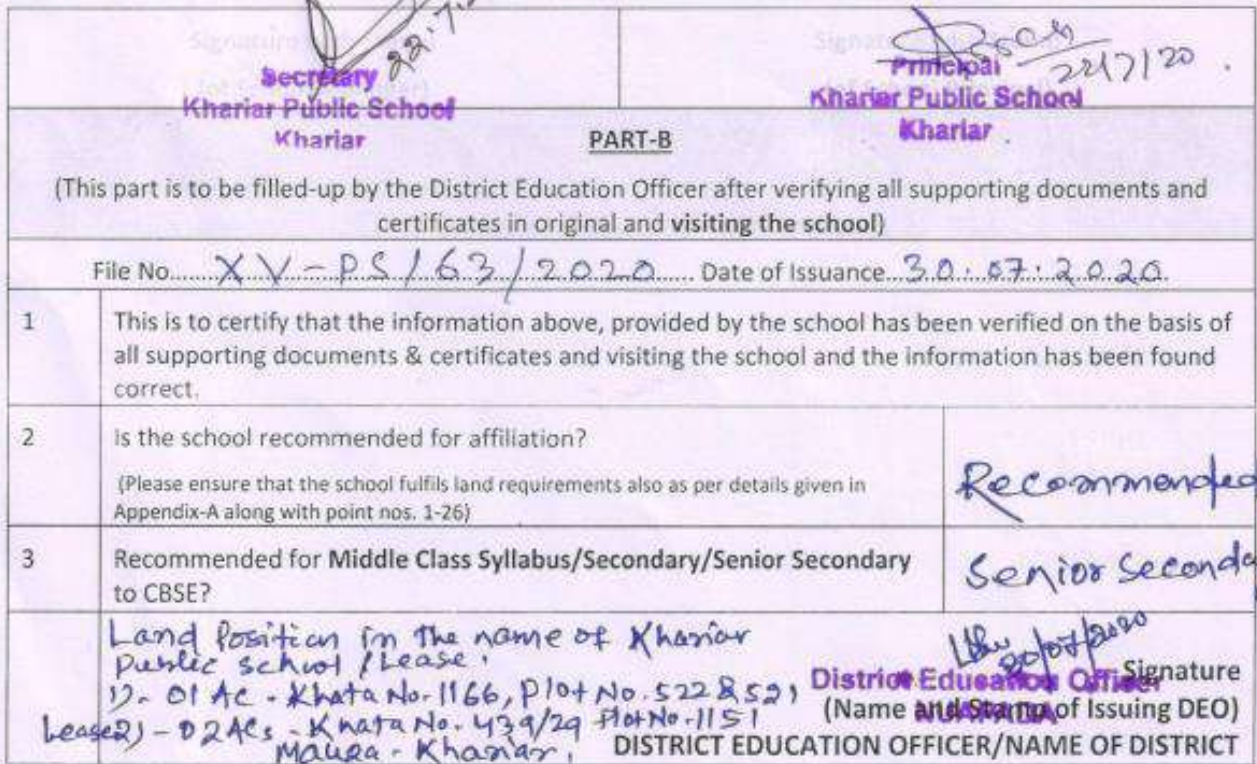 Signature
Secretary
Khariar Public School
Khariar
22.7.
Signat
22/7/20
Principal
Khariar Public School
Khariar
PART-B
(This part is to be filled-up by the District Education Officer after verifying all supporting documents and
certificates in original and visiting the school)
File No...... XV-PS/63/2020 ...... Date of Issuance... 30.07.2020
1 This is to certify that the information above, provided by the school has been verified on the basis of
all supporting documents & certificates and visiting the school and the information has been found
correct.
2 Is the school recommended for affiliation?
(Please ensure that the school fulfils land requirements also as per details given in
Appendix-A along with point nos. 1-26)
Recommended
3 Recommended for Middle Class Syllabus/Secondary/Senior Secondary
to CBSE?
Senior Seconda
Land Position in the name of Khariar
Public School / Lease.
1)- 01 AC - Khata No. 1166, Plot No. 522 & 521
Lease 2) - 02 ACs - Khata No. 439/29 Plot No-1151
Mauza - Khariar.
District Education Officer
NUAPADA
Signature
(Name and Stamp of Issuing DEO)
DISTRICT EDUCATION OFFICER/NAME OF DISTRICT